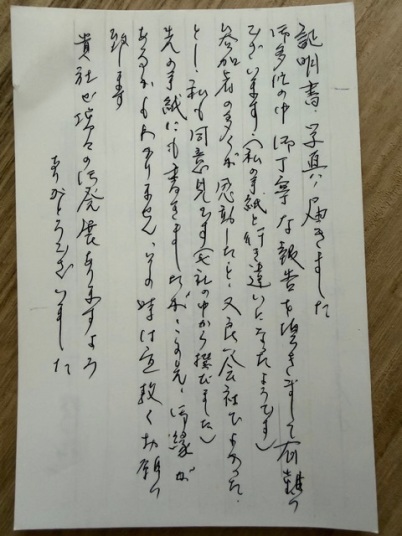 証明書、写真、届きました
御多忙の中 御丁寧な報告を頂きまして有難う
ございます。(私の手紙と行き違いとなったようです)
参加者の多くが感動したと、又良い会社でよかった、
とし、私も同意見です(七社の中から撰びました)
先の手紙にも書きましたが、この先、御縁が
あるかもわかりません、その時は宜敷くお願い
致します
貴社が益々の御発展ありますよう
ありがとうございました